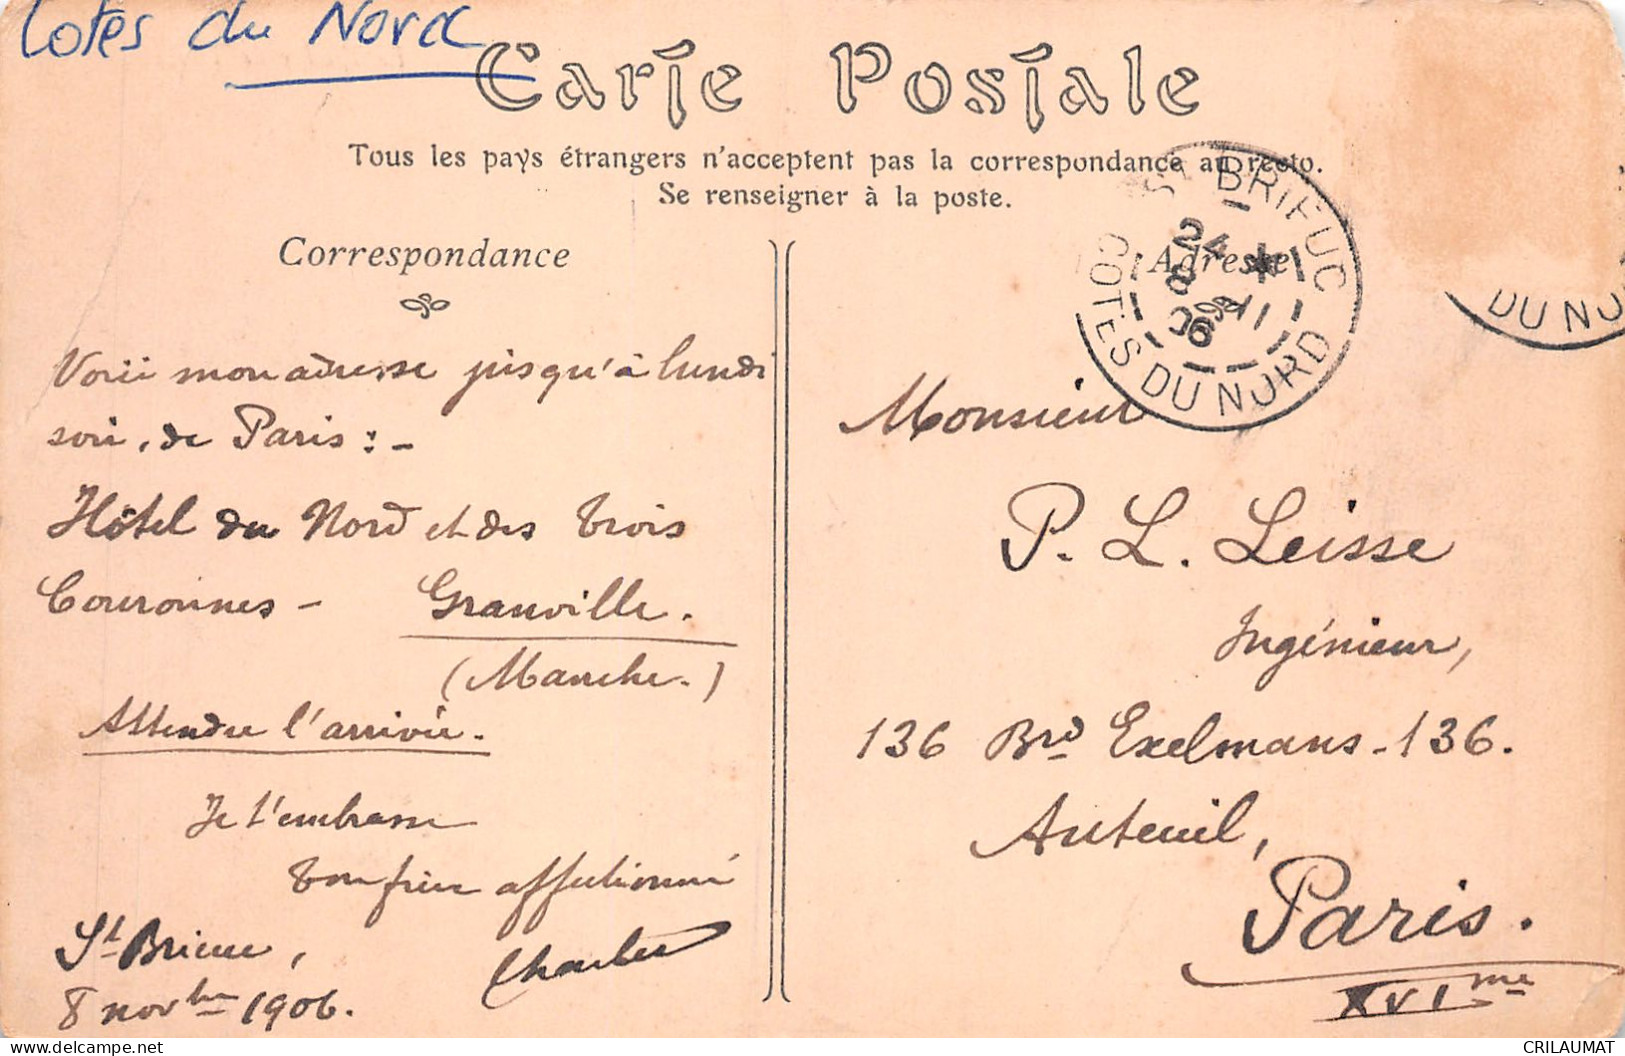 Cotes du Nord
Carte Postale
Tous les pays étrangers n'acceptent pas la correspondance au recto.
Se renseigner à la poste.
Correspondance
Voici mon adresse jusqu'à lundi
soir, de Paris : -
Hôtel du Nord et des Trois
Couronnes - Granville.
(Manche.)
Attendre l'arrivée.
Je t'embrasse
Ton frère affectionné
Charles
St Brieuc,
8 novbre 1906.
Adresse
ST BRIEUC
24 *
8 11
06
COTES DU NORD
DU NO
Monsieur
P. L. Leisse
Ingénieur,
136 Brd Exelmans - 136.
Auteuil,
Paris.
XVIme
delcampe.net
CRILAUMAT